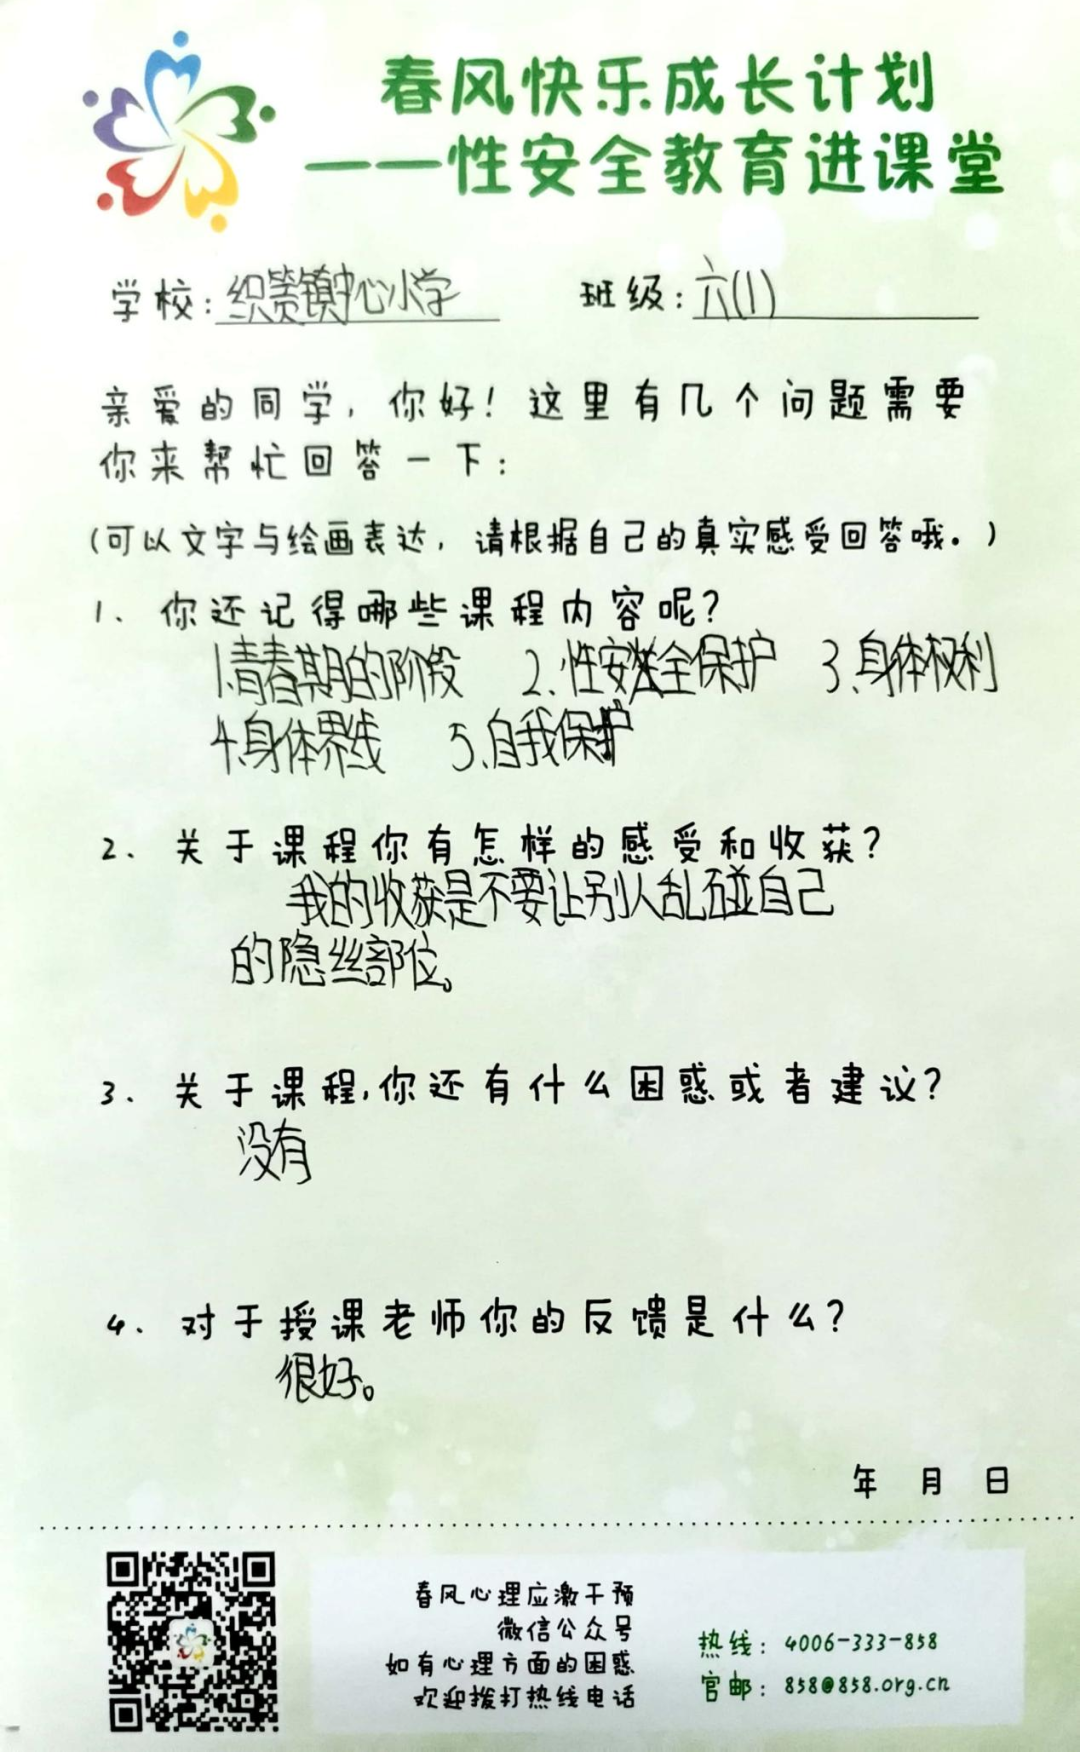 春风快乐成长计划
——性安全教育进课堂
学校:织篢镇中心小学 班级:六(1)
亲爱的同学,你好!这里有几个问题需要
你来帮忙回答一下:
(可以文字与绘画表达,请根据自己的真实感受回答哦。)
1. 你还记得哪些课程内容呢?
1.青春期的阶段 2.性安全保护 3.身体权利
4.身体界线 5.自我保护
2. 关于课程你有怎样的感受和收获?
我的收获是不要让别人乱碰自己
的隐丝部位。
3. 关于课程,你还有什么困惑或者建议?
没有
4. 对于授课老师你的反馈是什么?
很好。
年 月 日
春风心理应激干预
微信公众号
如有心理方面的困惑
欢迎拨打热线电话
热线:4006-333-858
官邮:858@858.org.cn